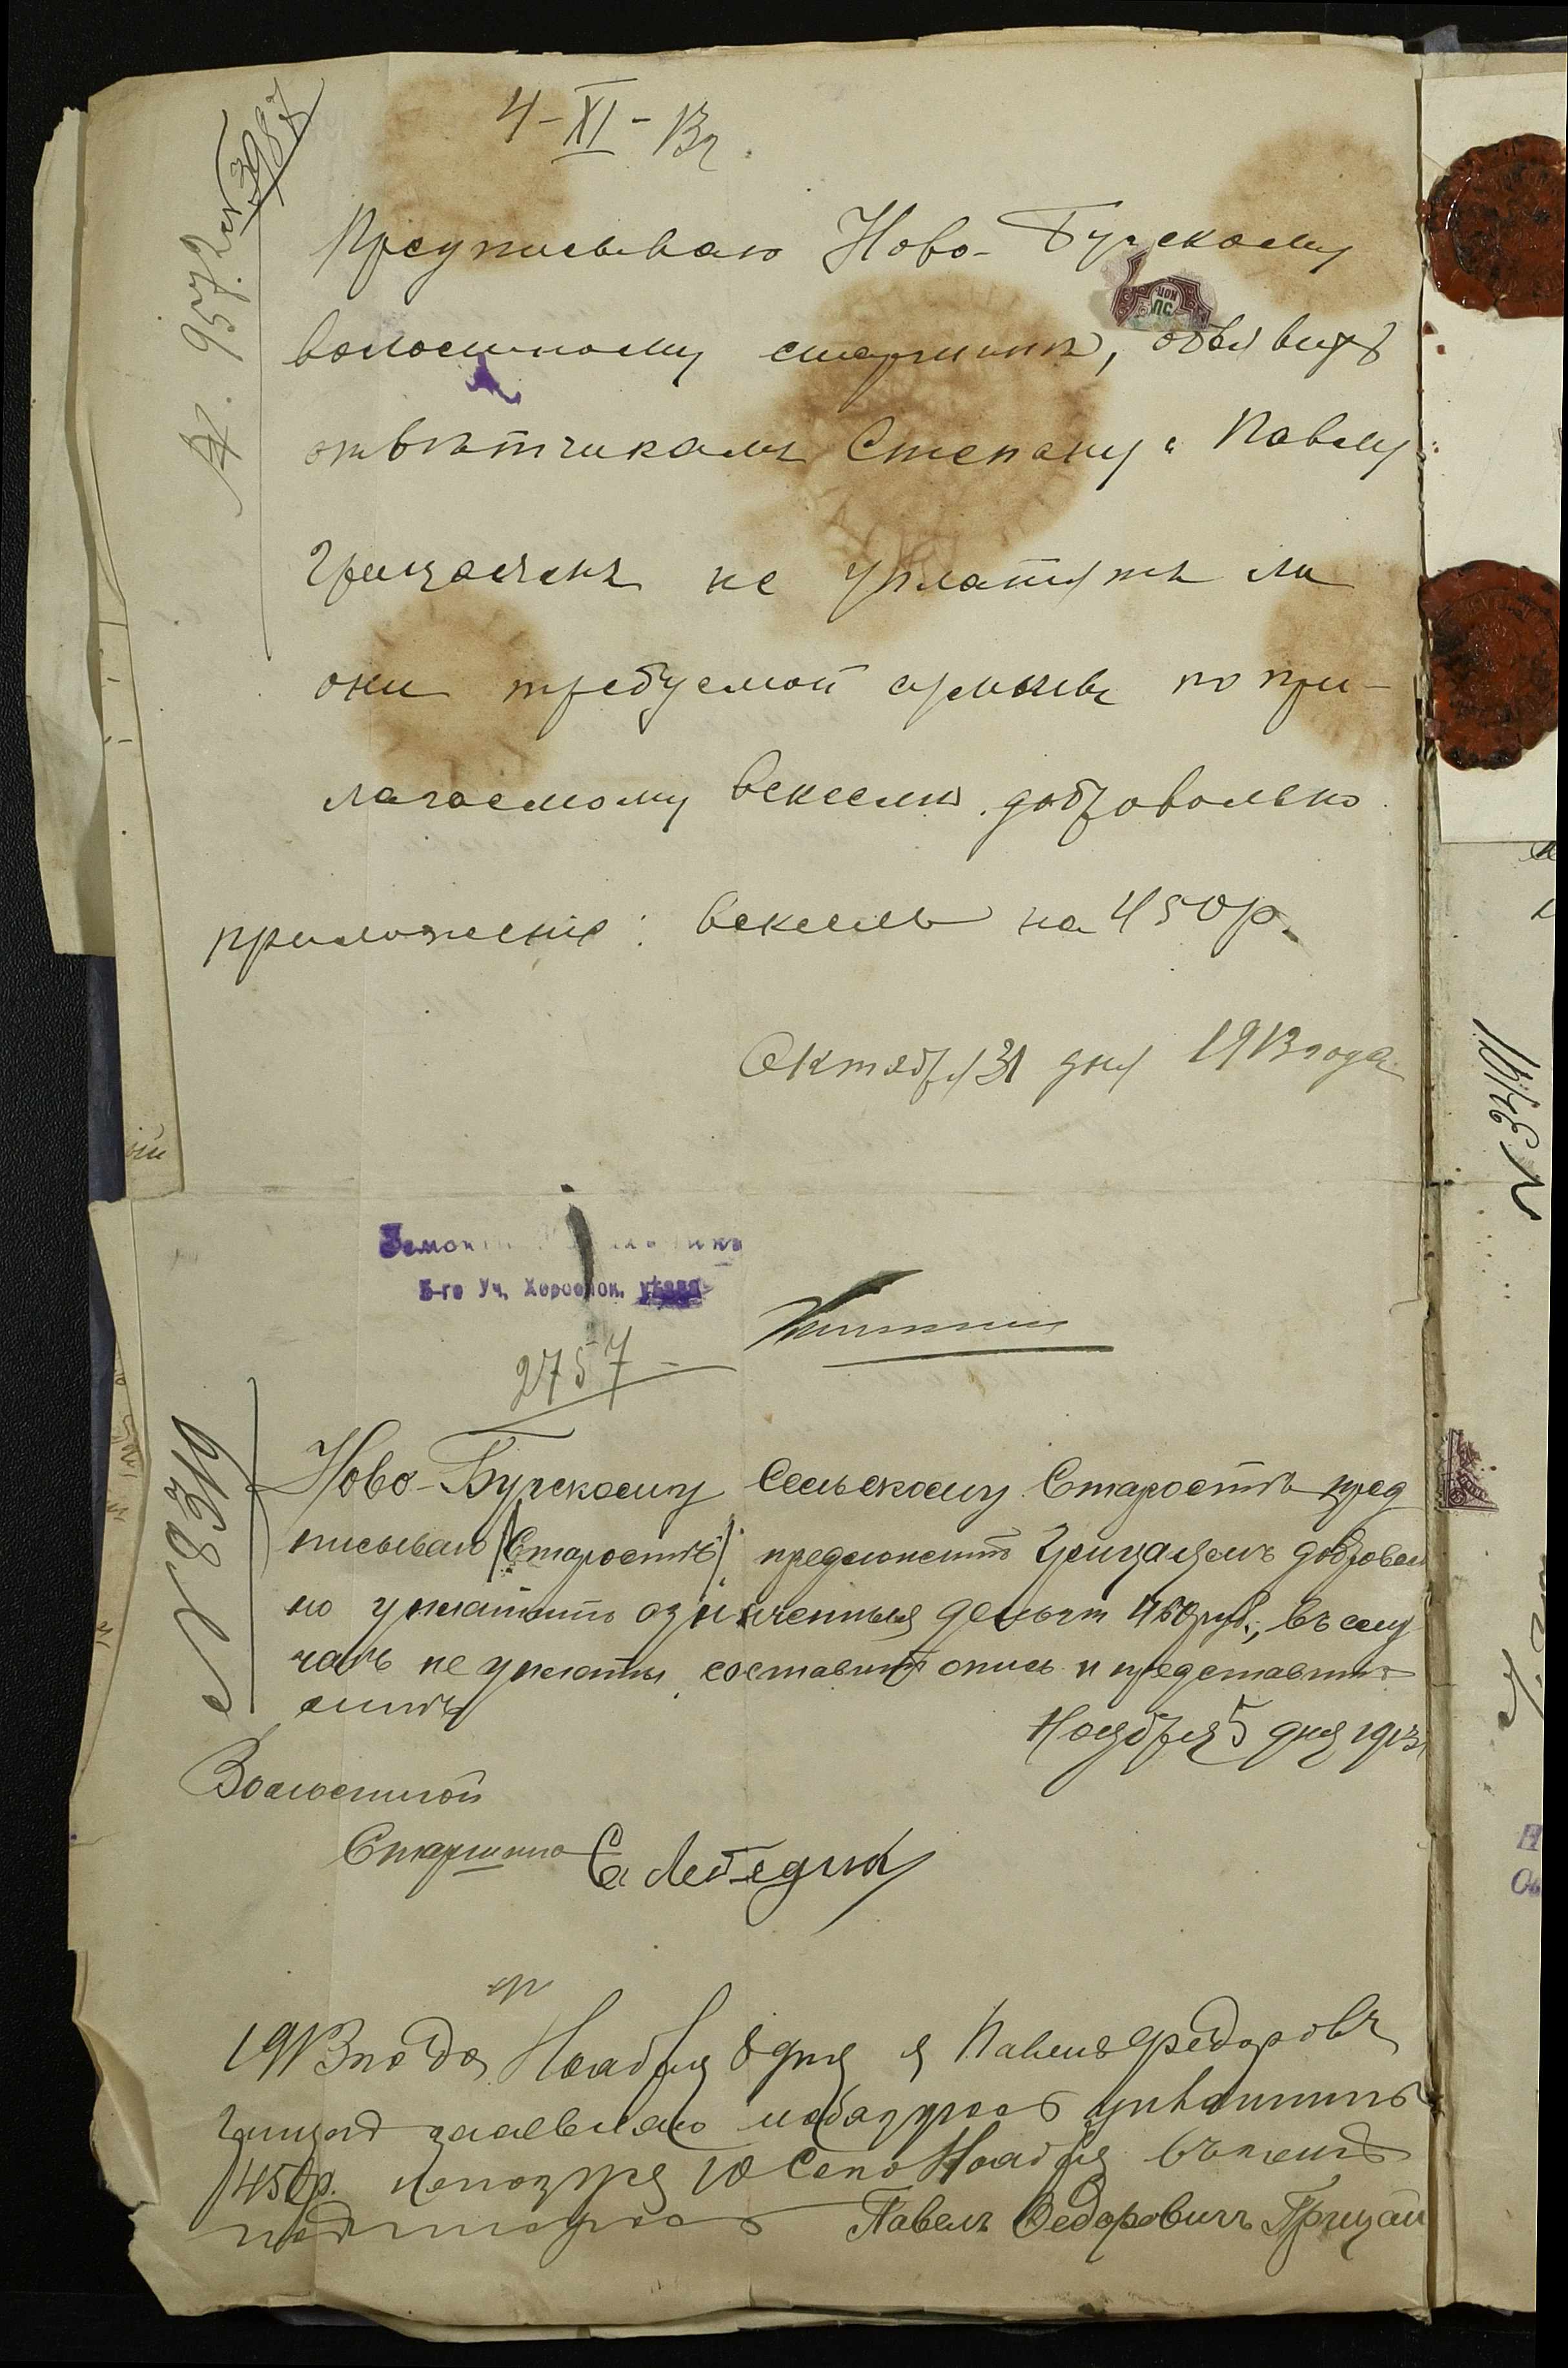 4-XI-13 г.
№ 3987
957.
Предписываю Ново-Бугскому
волостному старшинѣ, объявить
отвѣтчикамъ Степану и Павлу
Грицаямъ не уплатятъ ли
они требуемой суммы по при-
лагаемому векселю добровольно
приложеніе: вексель на 450 р.
Октября 31 дня 1913 года
5-го Уч. Херсонск. уѣзда
2757
№ 8319
Ново-Бугскому Сельскому Старостѣ пред
писываю (Старостѣ) предложить Грицаямъ добровол
но уплатить означенныя деньги 450 руб., въ слу
чаѣ не уплаты составить опись и представить
Ноября 5 дня 1913
Волостной
Старшина Лебедин
1913 года Ноября 8 дня я Павелъ Федоровъ
Грицай заявляю уплатить
450 р. непозже 10 Сего Ноября въ чемъ
Павелъ Федоровичъ Грицай